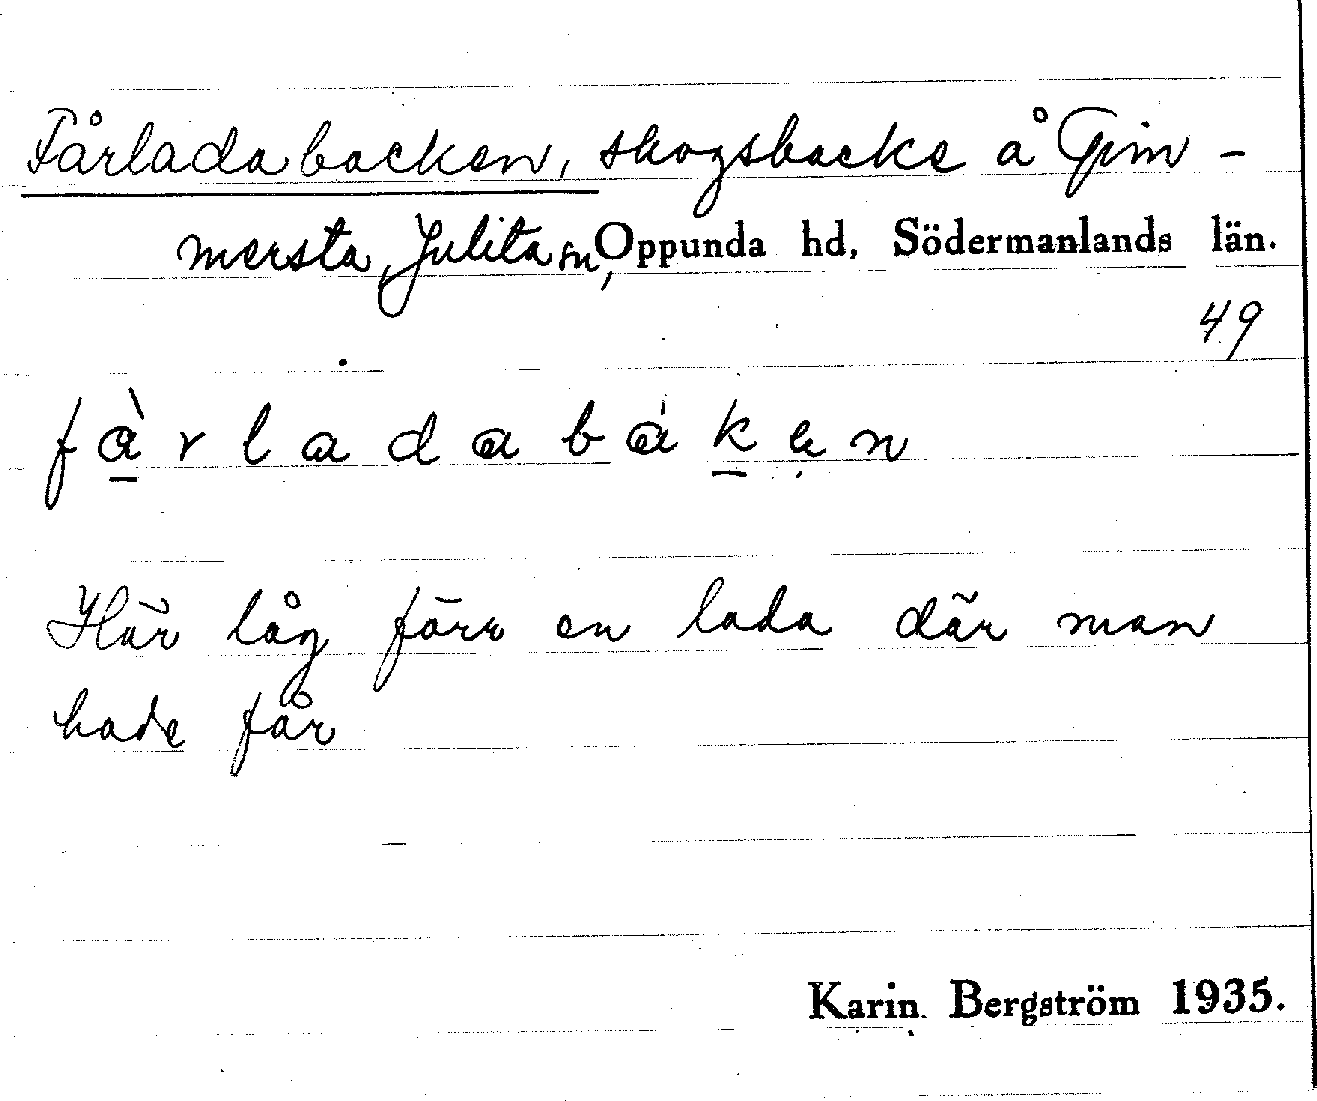 Fårladabacken, skogsbacke å Gim-
mersta, Julita sn, Oppunda hd, Södermanlands län.
49
fà̱rladabáḵẹn
Här låg förr en lada där man
hade får
Karin Bergström 1935.